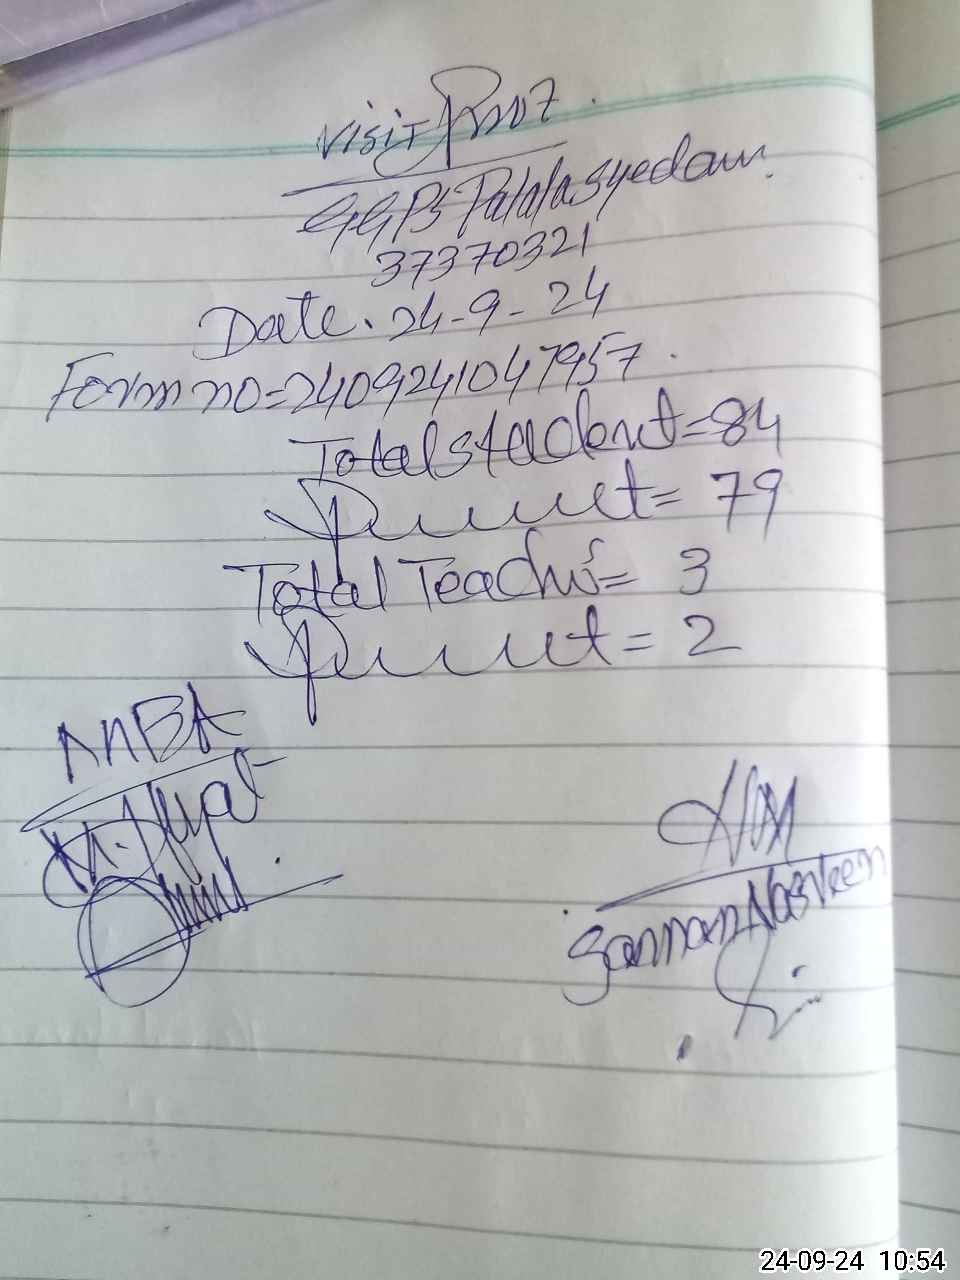 Visit Proof
GGPS Palalasyedan
37370321
Date. 24-9-24
Form no=2409241047957
Total student=84
Present=79
Total Teacher=3
Present=2
M.
Nasreen
24-09-24 10:54